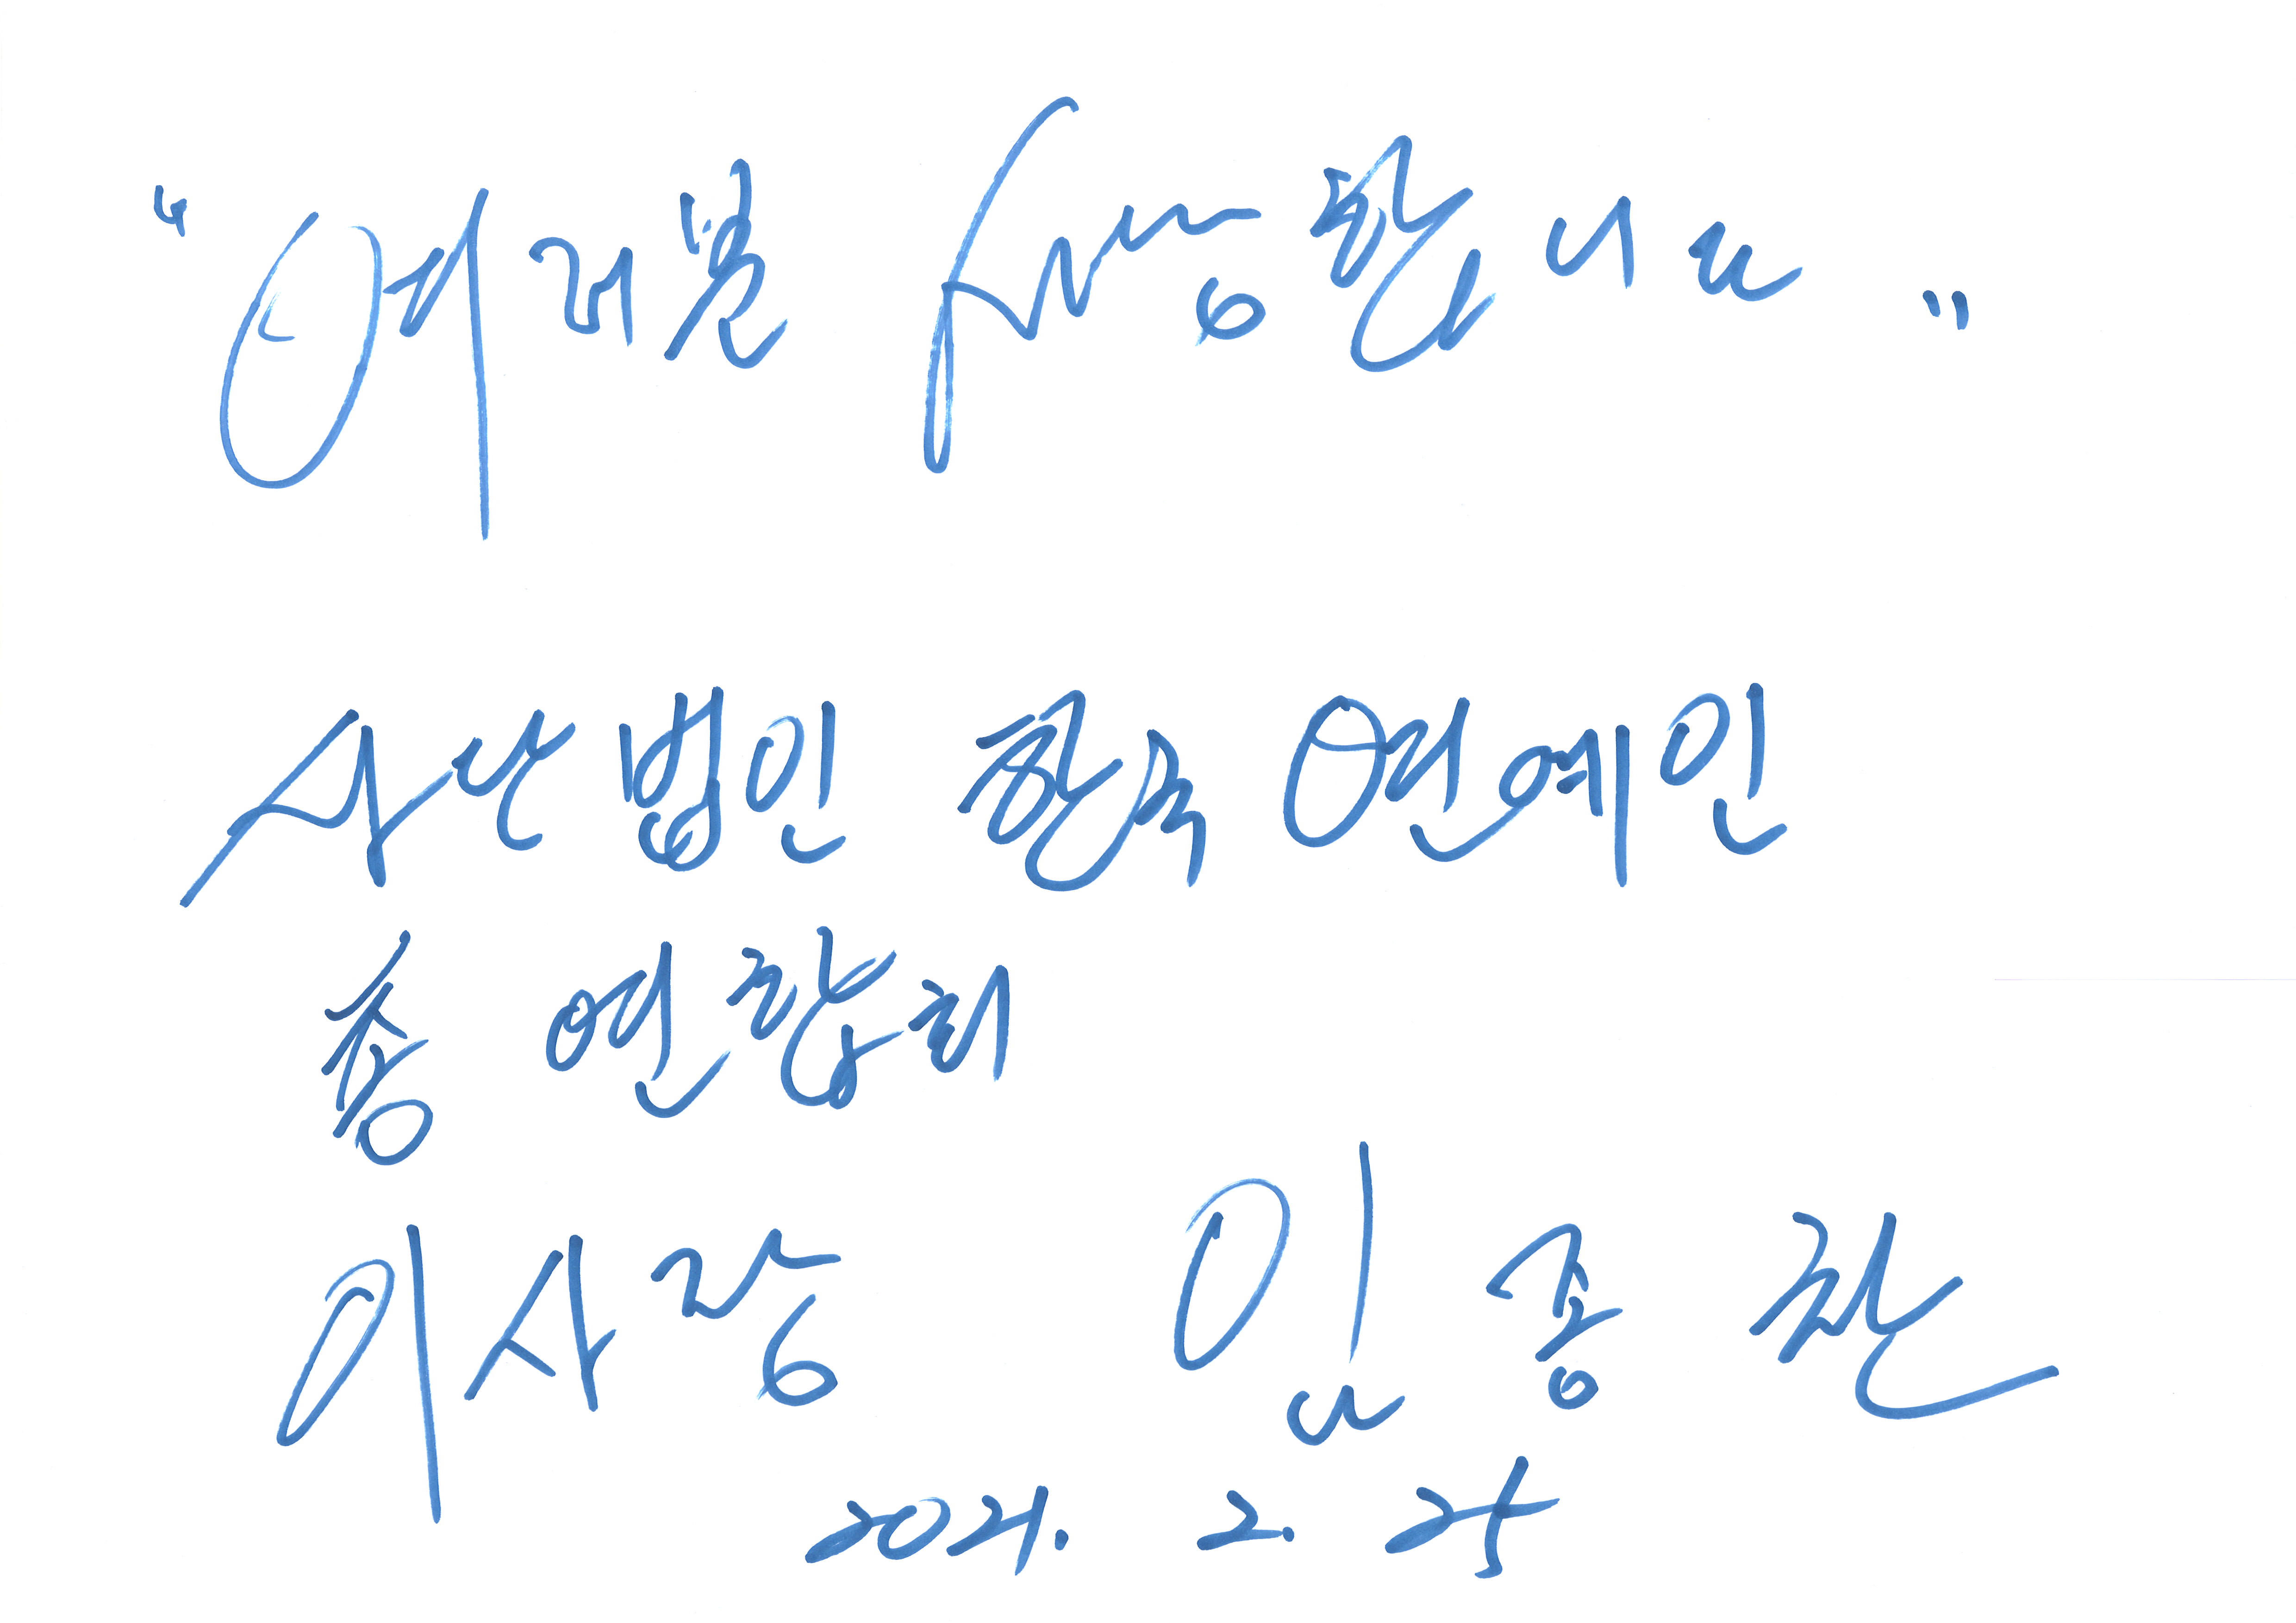 "여러분 사랑합니다"
사단법인 한국 연예인
총 연합회
이사장
2021. 2. 25